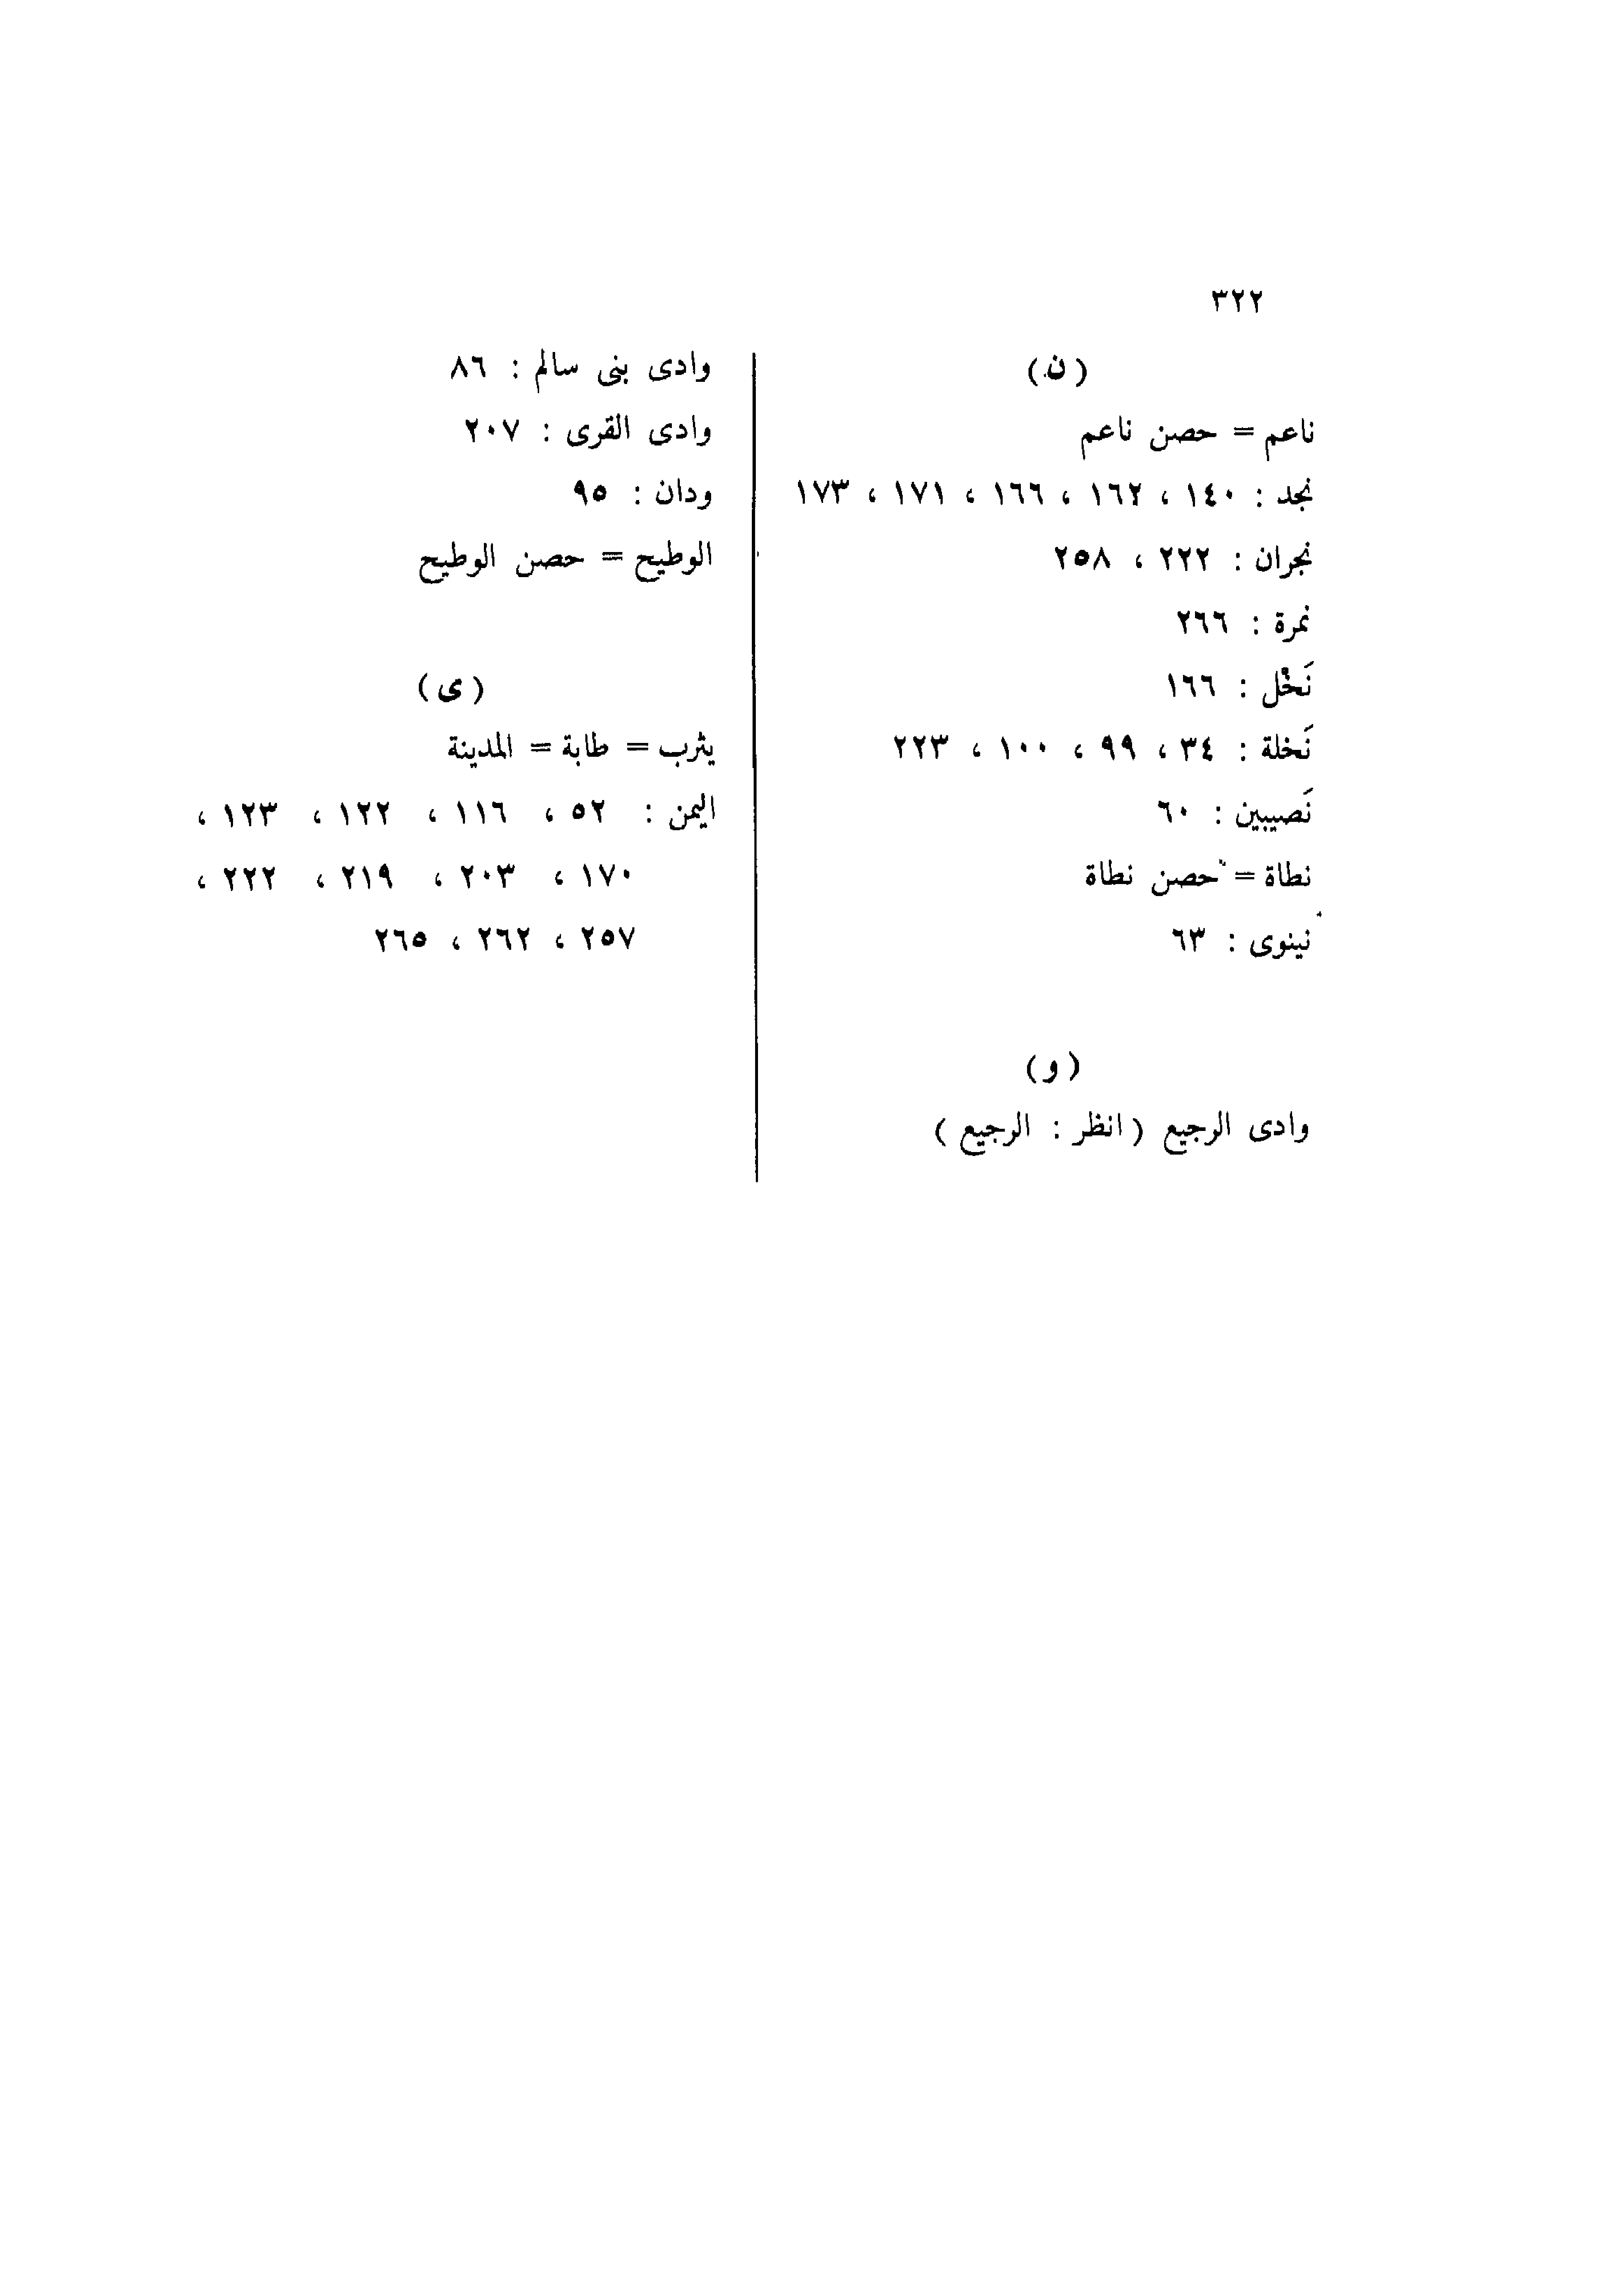 ٣٢٢
(ن)
ناعم = حصن ناعم
نجد : ١٤٠ ، ١٦٢ ، ١٦٦ ، ١٧١ ، ١٧٣
نجران : ٢٢٢ ، ٢٥٨
نمرة : ٢٦٦
نَخْل : ١٦٦
نَخلة : ٣٤ ، ٩٩ ، ١٠٠ ، ٢٢٣
نَصيبين : ٦٠
نطاة = حصن نطاة
نينوى : ٦٣
(و)
وادى الرجيع ( انظر : الرجيع )
وادى بنى سالم : ٨٦
وادى القرى : ٢٠٧
ودان : ٩٥
الوطيح = حصن الوطيح
(ى)
يثرب = طابة = المدينة
اليمن : ٥٢ ، ١١٦ ، ١٢٢ ، ١٢٣ ،
١٧٠ ، ٢٠٣ ، ٢١٩ ، ٢٢٢ ،
٢٥٧ ، ٢٦٢ ، ٢٦٥